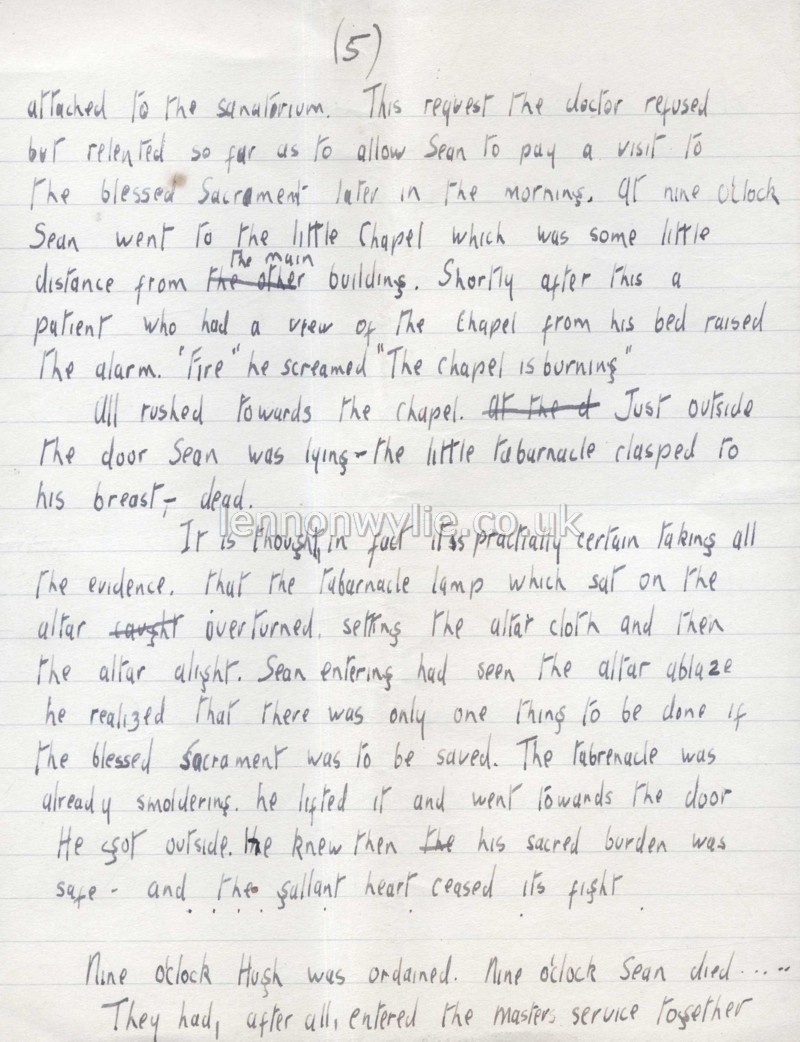 (5)
attached to the sanatorium. This request the doctor refused
but relented so far as to allow Sean to pay a visit to
the blessed Sacrament later in the morning. At nine o'clock
Sean went to the little Chapel which was some little
the main
distance from the other building. Shortly after this a
patient who had a view of the Chapel from his bed raised
the alarm. "Fire" he screamed "The chapel is burning"
All rushed towards the chapel. At the d Just outside
the door Sean was lying - the little tabarnacle clasped to
his breast, - dead.
lennonwylie.co.uk
It is thought, in fact it is practially certain taking all
the evidence. that the tabarnacle lamp which sat on the
altar caught overturned. setting the altar cloth and then
the altar alight. Sean entering had seen the altar ablaze
he realized that there was only one thing to be done if
the blessed Sacrament was to be saved. The tabrenacle was
already smoldering. he lifted it and went towards the door
He got outside. He knew then the his sacred burden was
safe - and the gallant heart ceased its fight
. . . . . . . .
Nine o'clock Hugh was ordained. Nine o'clock Sean died.....
They had, after all, entered the masters service together